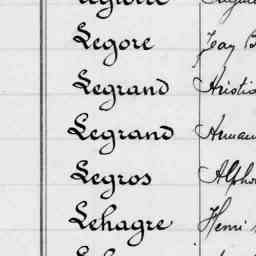 Legore Jay B
Legrand Aristid
Legrand Arman
Legros Alpho
Lehagre Henri